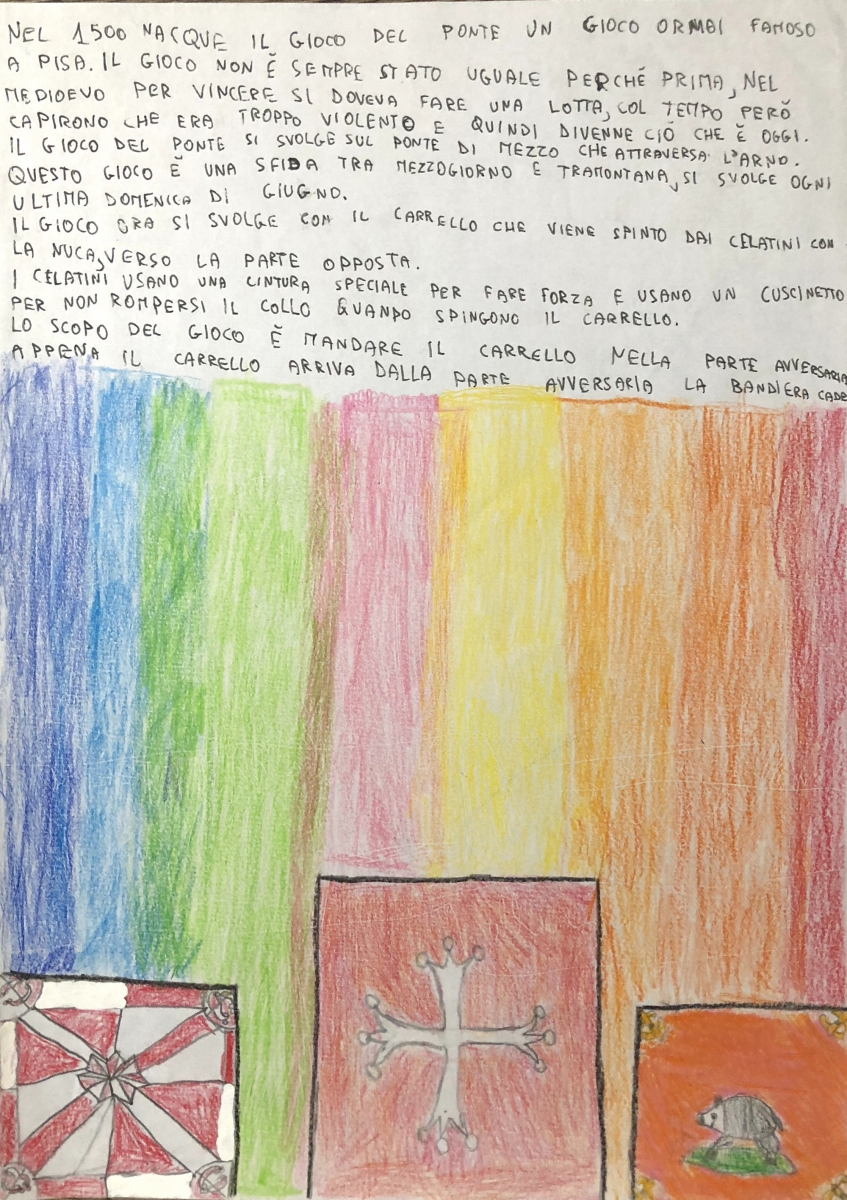 NEL 1500 NACQUE IL GIOCO DEL PONTE UN GIOCO ORMAI FAMOSO
A PISA. IL GIOCO NON È SEMPRE STATO UGUALE PERCHÉ PRIMA, NEL
MEDIOEVO PER VINCERE SI DOVEVA FARE UNA LOTTA, COL TEMPO PERÒ
CAPIRONO CHE ERA TROPPO VIOLENTO E QUINDI DIVENNE CIÒ CHE È OGGI.
IL GIOCO DEL PONTE SI SVOLGE SUL PONTE DI MEZZO CHE ATTRAVERSA L'ARNO.
QUESTO GIOCO È UNA SFIDA TRA MEZZOGIORNO E TRAMONTANA, SI SVOLGE OGNI
ULTIMA DOMENICA DI GIUGNO.
IL GIOCO ORA SI SVOLGE CON IL CARRELLO CHE VIENE SPINTO DAI CELATINI CON
LA NUCA, VERSO LA PARTE OPPOSTA.
I CELATINI USANO UNA CINTURA SPECIALE PER FARE FORZA E USANO UN CUSCINETTO
PER NON ROMPERSI IL COLLO QUANDO SPINGONO IL CARRELLO.
LO SCOPO DEL GIOCO È MANDARE IL CARRELLO NELLA PARTE AVVERSARIA
APPENA IL CARRELLO ARRIVA DALLA PARTE AVVERSARIA LA BANDIERA CADE